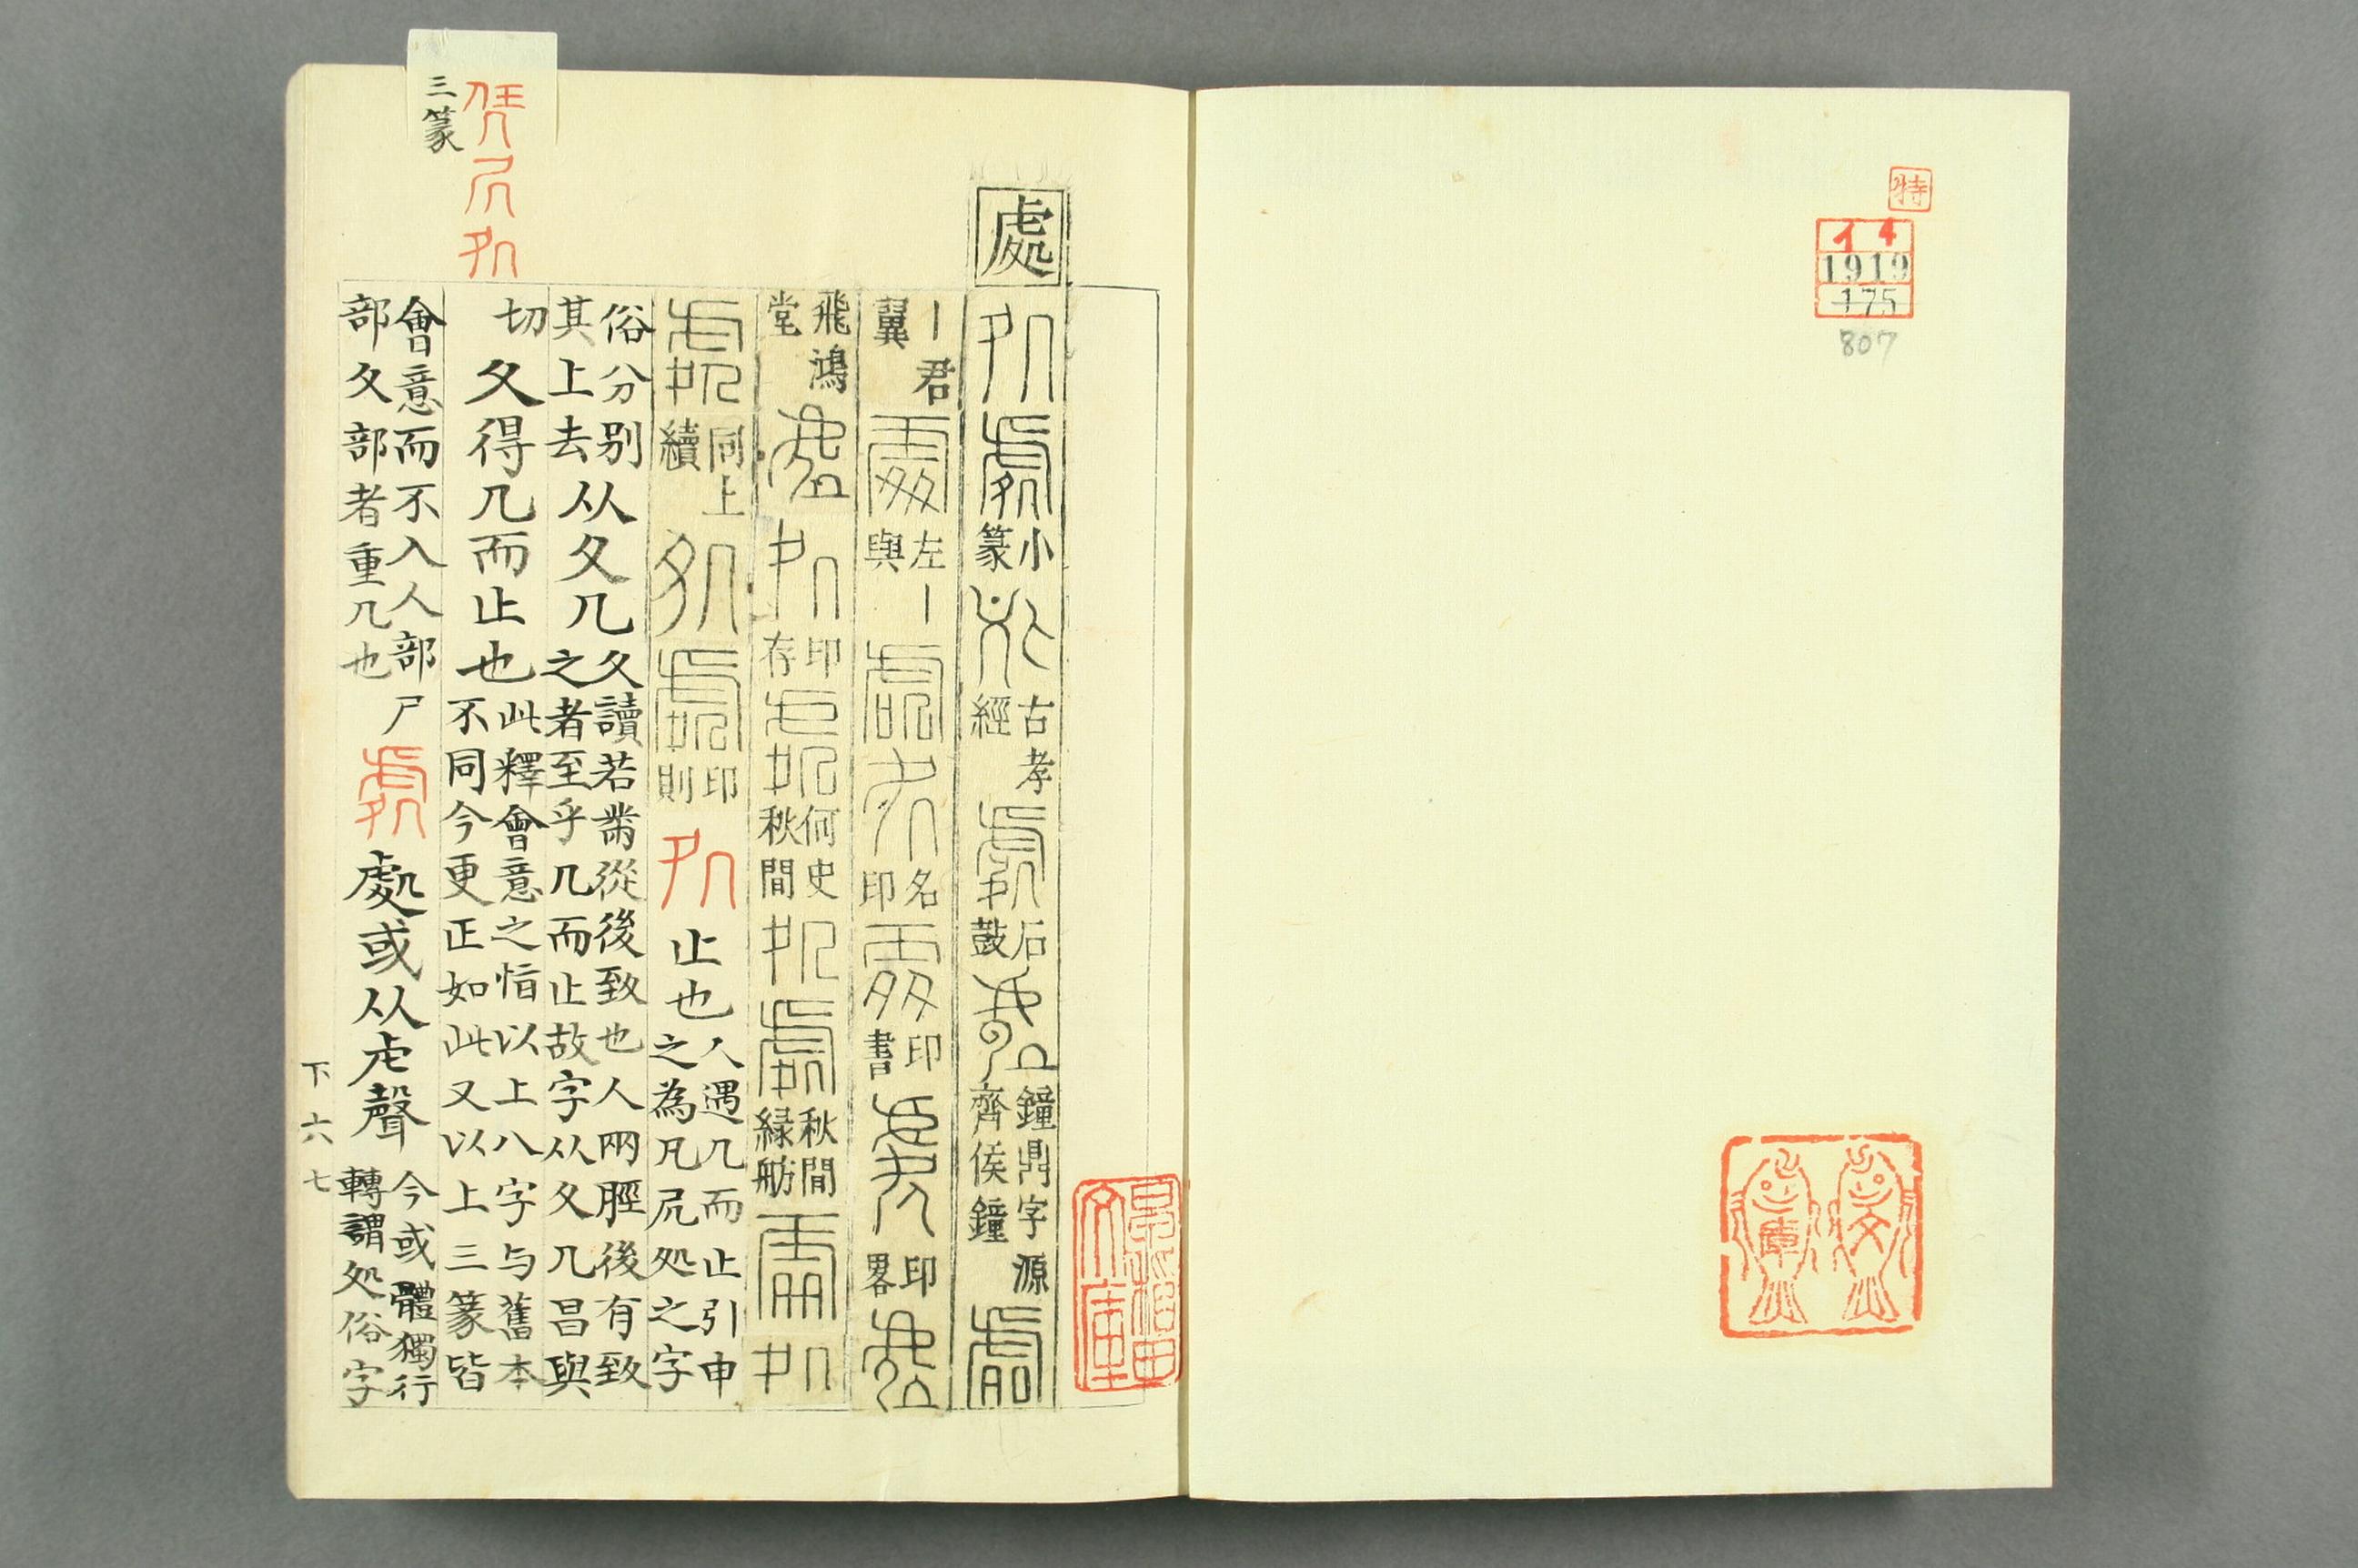 特
イ4
1919
175
807
文庫
處
処處小篆
古孝經
石鼓
鐘鼎字源
齊侯鐘
丨君
翼
左丨
與
名印
印書
印畧
飛鴻堂
印存
何史
秋間
秋間
緑舫
同上
續
印則
処止也人遇几而止引申
之為凡凥処之字
俗分別
其上去从夂几夂讀若黹從後致也人兩脛後有致
之者至乎几而止故字从夂几昌與
切夂得几而止也此釋會意之恉以上八字与舊本
不同今更正如此又以上三篆皆
會意而不入人部尸
部夂部者重几也處處或从虍聲今或體獨行
轉謂処俗字
三篆
下六七